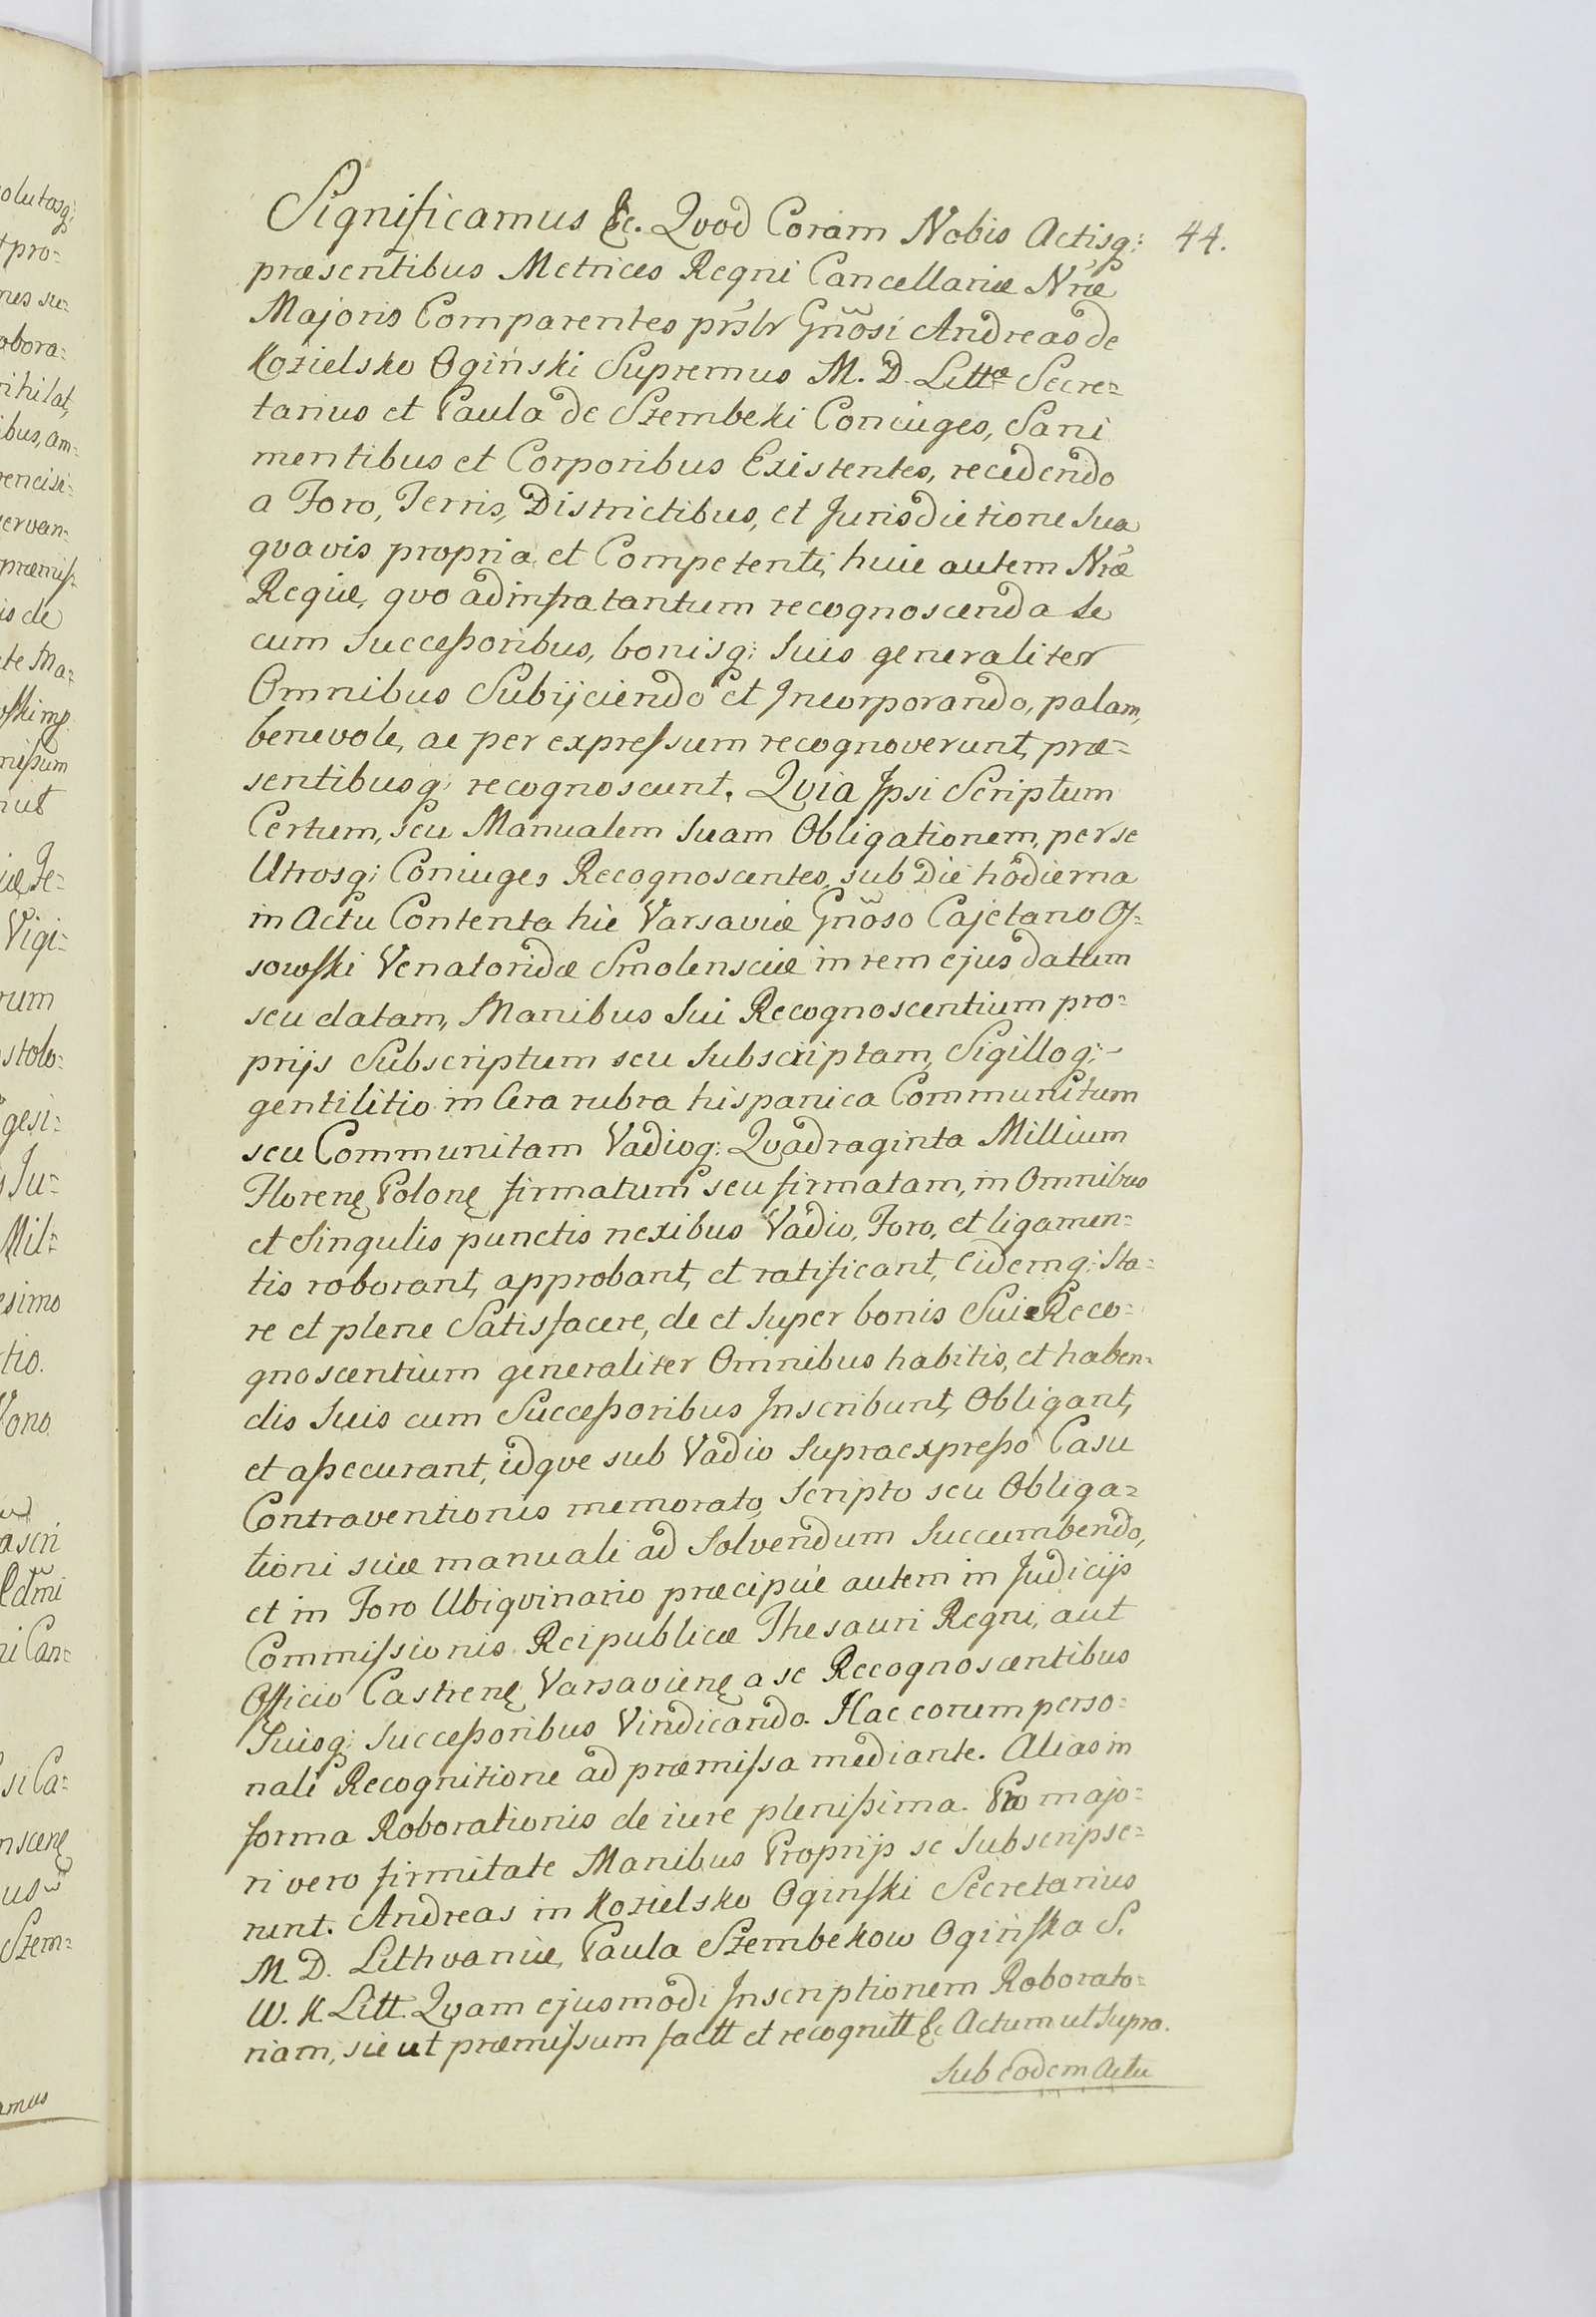 Significamus &c. Qvod Coram Nobis Actisq: 44.
præsentibus Metrices Regni Cancellariæ Nræ
Majoris Comparentes prsltr Gnosi Andreas de
Kozielsko Ogiński Supremus M. D. Littæ Secre=
tarius et Paula de Szembeki Coniuges, Sani
mentibus et Corporibus Existentes, recedendo
a Foro, Terris, Districtibus, et Jurisdictione Sua
qvavis propria et Competenti, huic autem Nræ
Regiæ, qvo ad infra tantum recognoscenda Se
cum Successoribus, bonisq: Suis generaliter
Omnibus Subijciendo et Incorporando, palam,
benevole, ac per expressum recognoverunt, præ=
sentibusq: recognoscunt. Qvia Ipsi Scriptum
Certum, seu Manualem Suam Obligationem, per se
Utrosq: Coniuges Recognoscentes, sub Die hodierna
in Actu Contenta hic Varsaviæ Gnoso Cajetano Os=
sowski Venatoridæ Smolensciæ in rem ejus datum
seu datam, Manibus Sui Recognoscentium pro=
prijs Subscriptum seu Subscriptam, Sigilloq: -
gentilitio in Cera rubra hispanica Communitum
seu Communitam Vadioq: Qvadraginta Millium
Florenę Polonę firmatum seu firmatam, in Omnibus
et Singulis punctis nexibus Vadio, Foro, et ligamen=
tis roborant, approbant, et ratificant, Eidemq: Sta=
re et plene Satisfacere, de et Super bonis Sui Reco=
gnoscentium generaliter Omnibus habitis, et haben=
dis Suis cum Successoribus Inscribunt, Obligant,
et assecurant, idqve sub Vadio Supraexpresso Casu
Contraventionis memorato, Scripto seu Obliga=
tioni suæ manuali ad Solvendum Succumbendo,
et in Foro Ubiqvinario præcipue autem in Judicijs
Commissionis Reipublicæ Thesauri Regni, aut
Officio Castrenę Varsavienę a se Recognoscentibus
Suisq: Successoribus Vindicando. Hac eorum perso=
nali Recognitione ad præmissa mediante. Alias in
forma Roborationis de iure plenissima. Pro majo=
ri vero firmitate Manibus Proprijs se Subscripse=
runt. Andreas in Kozielsko Oginski Secretarius
M. D. Lithvaniæ, Paula Szembekow Ogińska S.
W. K. Litt. Qvam ejusmodi Inscriptionem Roborato=
riam, sic ut præmissum factt et recognitt &c Actum ut Supra.
Sub eodem Actu